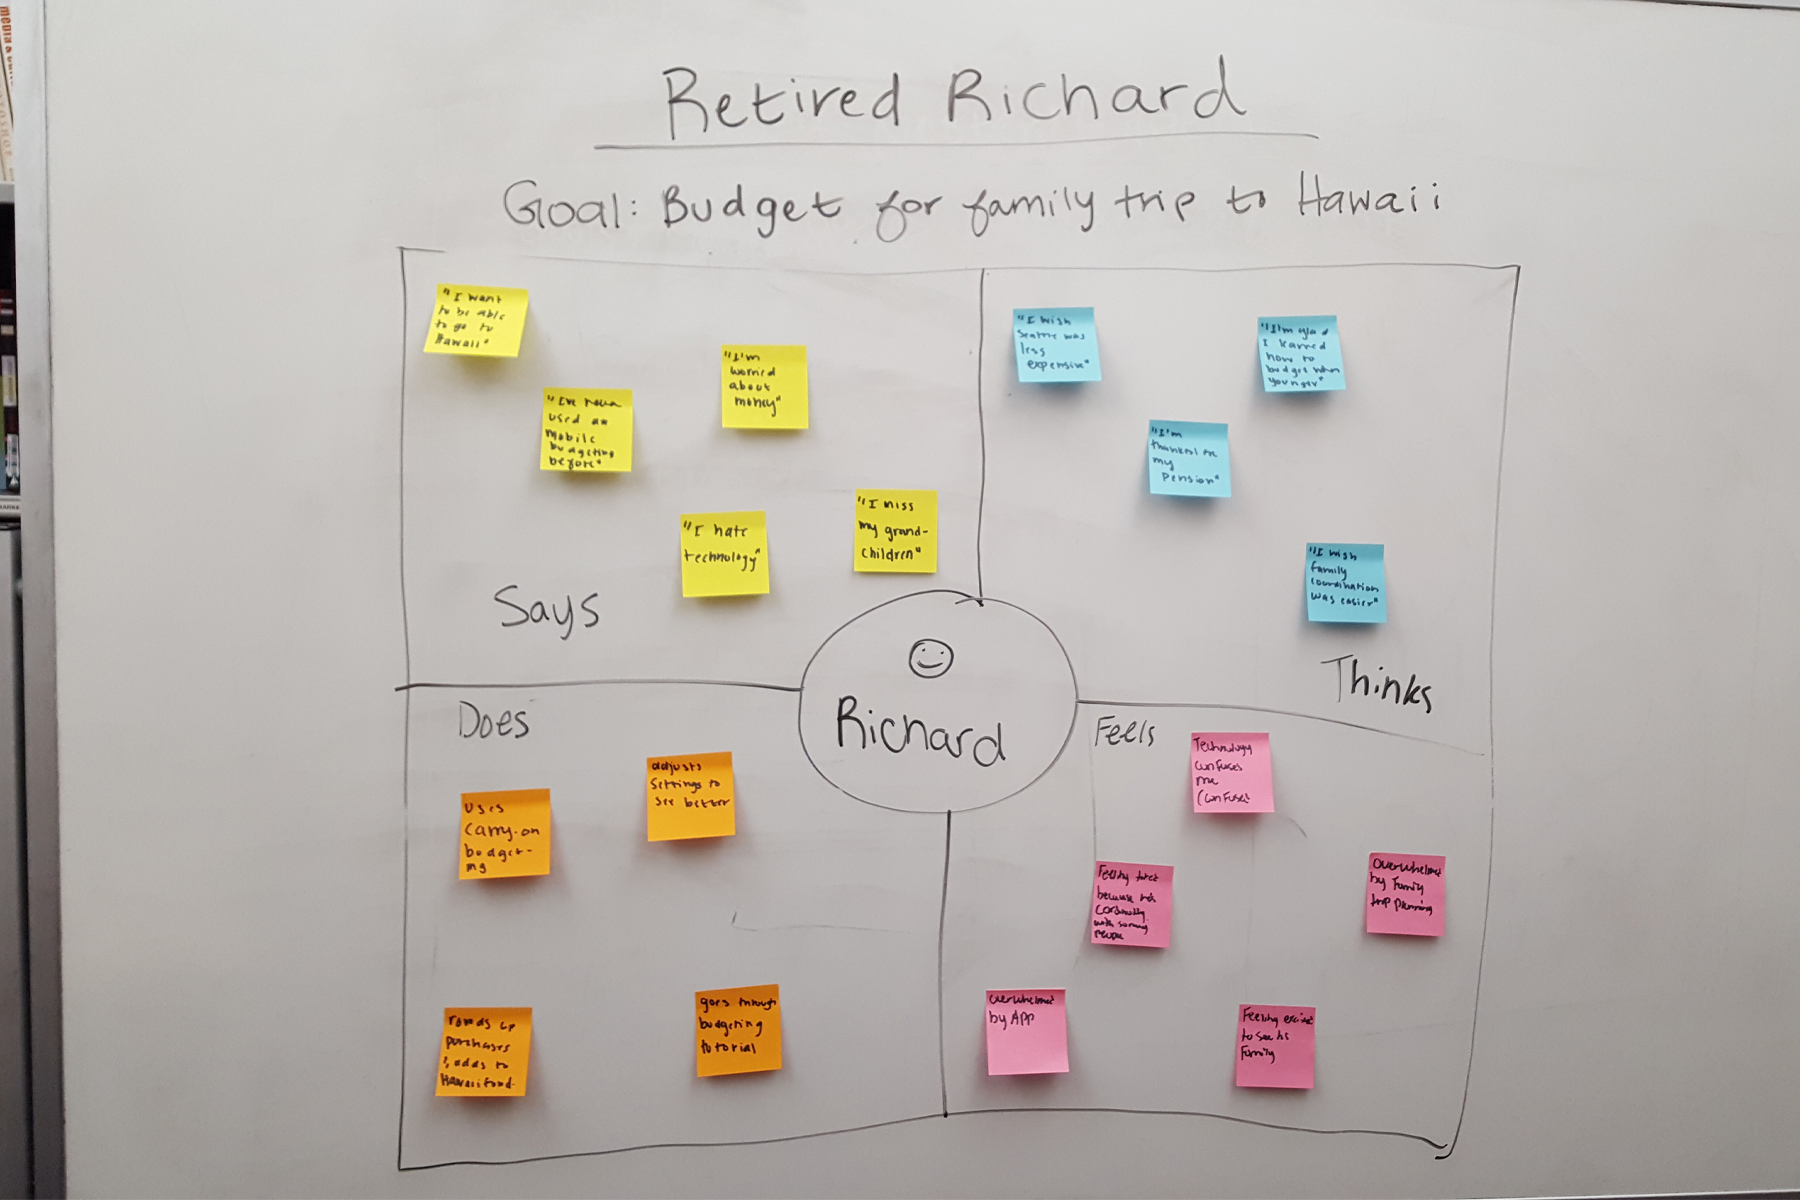 Retired Richard
Goal: Budget for family trip to Hawaii
"I want
to be able
to go to
Hawaii"
"I'm
worried
about
money"
"I've never
used an
mobile
budgeting
before"
"I hate
technology"
"I miss
my grand-
children"
Says
"I wish
Seattle was
less
expensive"
"I'm glad
I learned
how to
budget when
younger"
"I'm
thankful for
my
pension"
"I wish
family
coordination
was easier"
Thinks
Richard
Does
adjusts
settings to
see better
uses
carry-on
budget-
ing
rounds up
purchases
& adds to
Hawaii fund
goes through
budgeting
tutorial
Feels
Technology
confuses
me
(confused
Feeling
because
with
people
overwhelmed
by Family
trip planning
overwhelmed
by APP
Feeling excited
to see his
Family